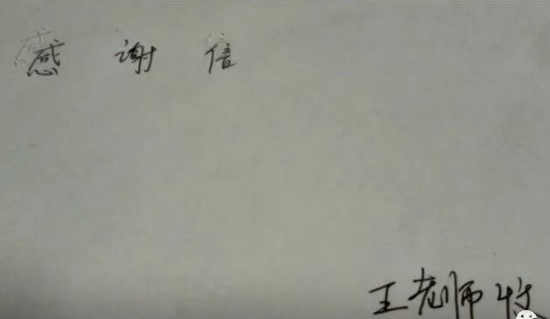 感 谢 信
王老师